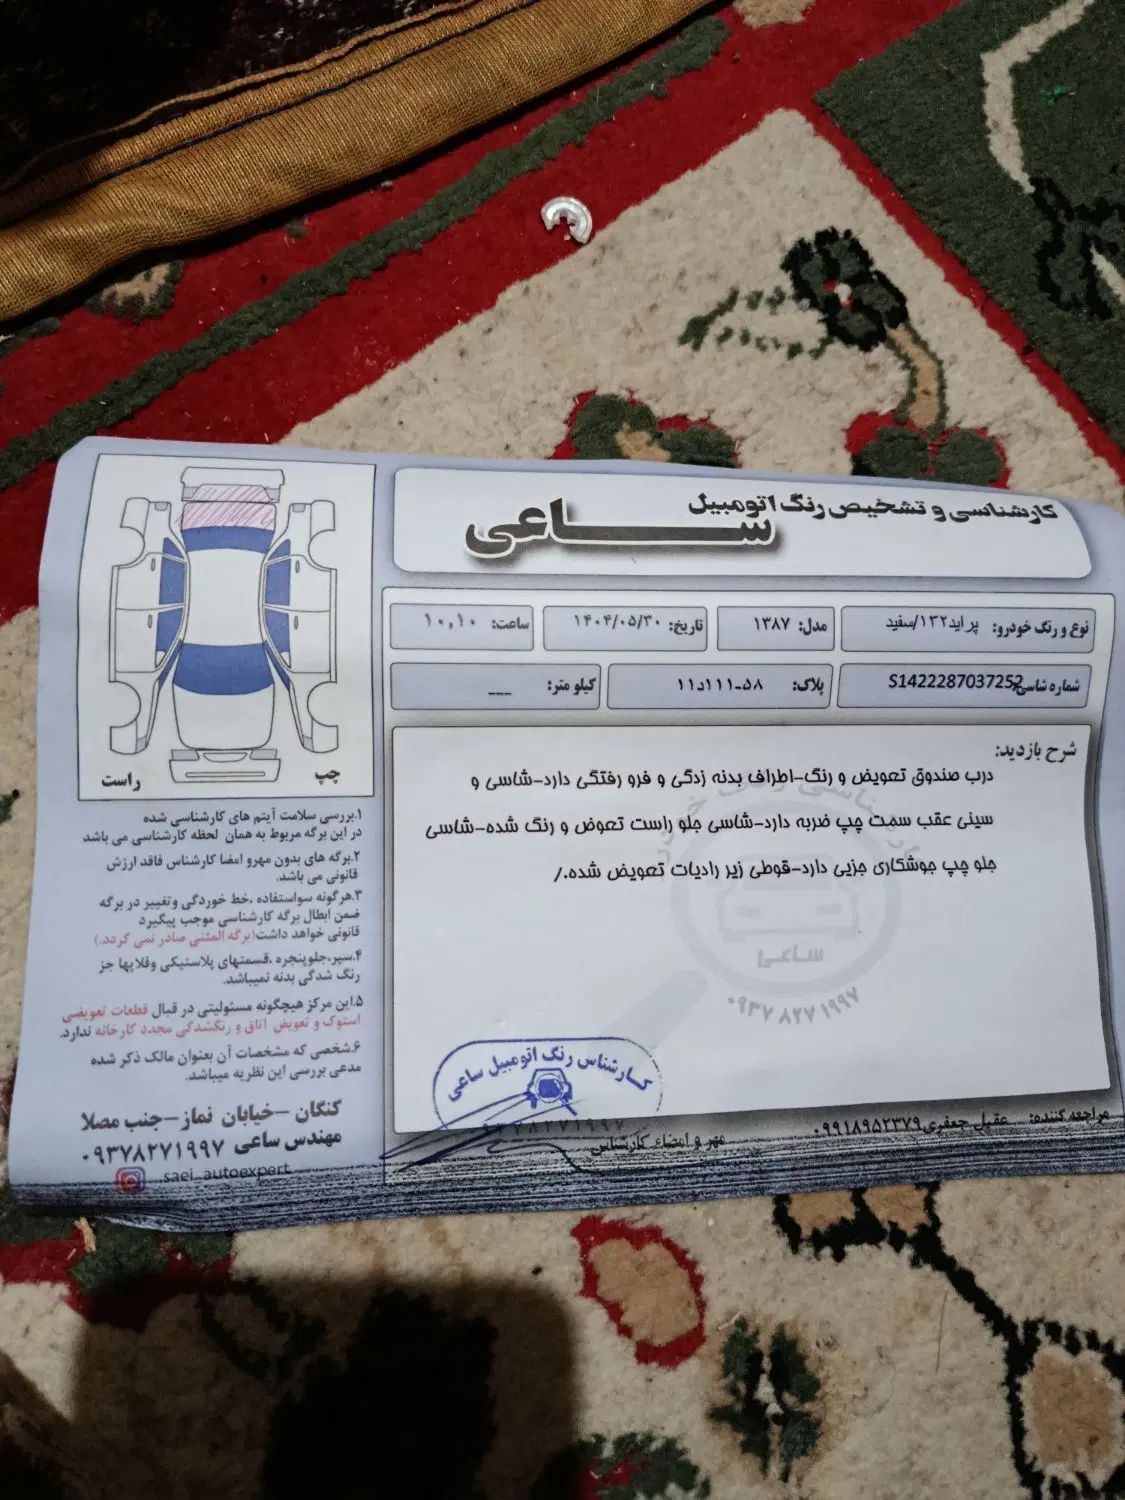 کارشناسی و تشخیص رنگ اتومبیل
ساعی
نوع و رنگ خودرو: پراید۱۳۲/سفید
مدل: ۱۳۸۷
تاریخ: ۱۴۰۴/۰۵/۳۰
ساعت: ۱۰,۱۰
شماره شاسی: S1422287037252
پلاک: ۵۸-۱۱۱د۱۱
کیلو متر: ---
شرح بازدید:
درب صندوق تعویض و رنگ-اطراف بدنه زدگی و فرو رفتگی دارد-شاسی و
سینی عقب سمت چپ ضربه دارد-شاسی جلو راست تعوض و رنگ شده-شاسی
جلو چپ جوشکاری جزیی دارد-قوطی زیر رادیات تعویض شده./
ساعی
۰۹۳۷ ۸۲۷ ۱۹۹۷
کارشناس رنگ اتومبیل ساعی
۰۹۳۷۸۲۷۱۹۹۷
مهر و امضاء کارشناس
مراجعه کننده: عقیل جعفری۰۹۹۱۸۹۵۲۳۷۹
چپ
راست
۱.بررسی سلامت آیتم های کارشناسی شده
در این برگه مربوط به همان لحظه کارشناسی می باشد
۲.برگه های بدون مهرو امضا کارشناس فاقد ارزش
قانونی می باشد.
۳.هرگونه سواستفاده ،خط خوردگی وتغییر در برگه
ضمن ابطال برگه کارشناسی موجب پیگیرد
قانونی خواهد داشت(برگه المثنی صادر نمی گردد.)
۴.سپر،جلوپنجره ،قسمتهای پلاستیکی وفلاپها جز
رنگ شدگی بدنه نمیباشد.
۵.این مرکز هیچگونه مسئولیتی در قبال قطعات تعویضی
استوک و تعویض اتاق و رنگشدگی مجدد کارخانه ندارد.
۶.شخصی که مشخصات آن بعنوان مالک ذکر شده
مدعی بررسی این نظریه میباشد.
کنگان -خیابان نماز-جنب مصلا
مهندس ساعی ۰۹۳۷۸۲۷۱۹۹۷
saei_autoexpert